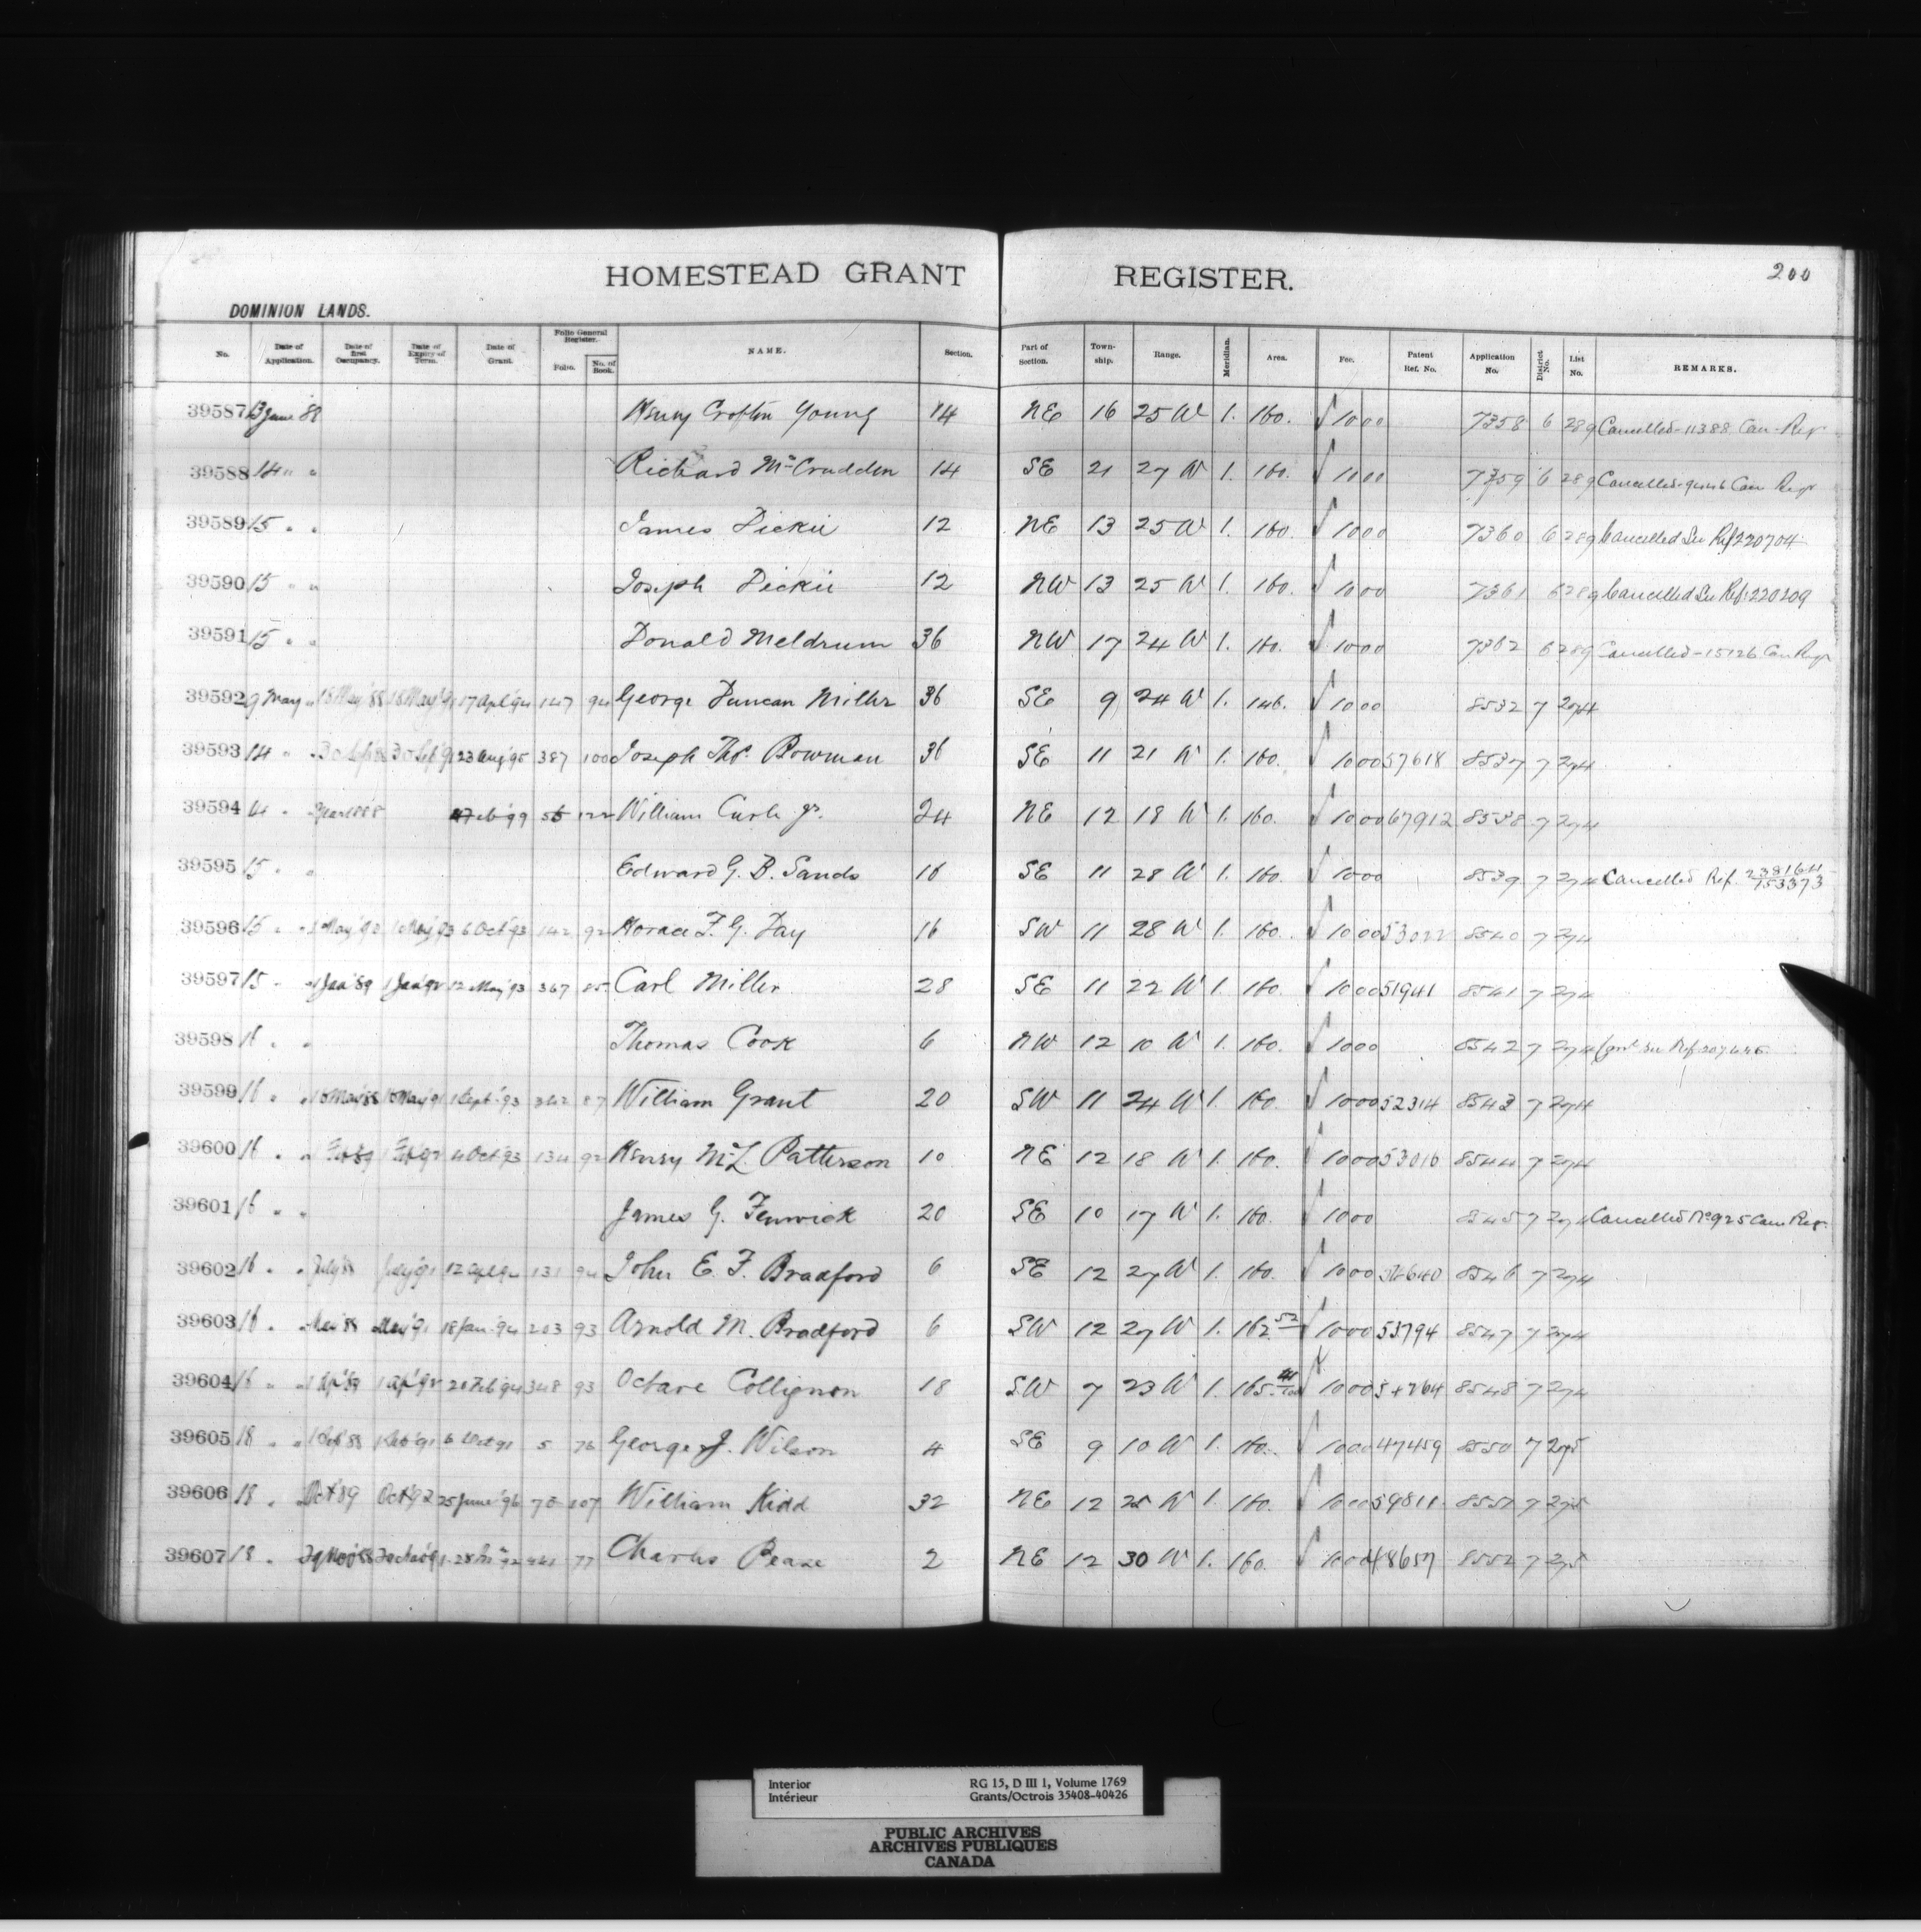 HOMESTEAD GRANT REGISTER. 200
DOMINION LANDS.
No. Date of Application. Date of first Occupancy. Date of Expiry of Term. Date of Grant. Folio General Register. Folio. No. of Book. NAME. Section. Part of Section. Township. Range. Meridian. Area. Fee. Patent Ref. No. Application No. District No. List No. REMARKS.
39587 13 June '88 Henry Crofton Young 14 NE 16 25 W 1. 160. √ 10 00 7358 6 289 Cancelled - 11388 Can - Reg
39588 14 " " Richard McCrudden 14 SE 21 27 W 1. 160. √ 10 00 7359 6 289 Cancelled - 9446 Can Regr
39589 15 " " James Dickie 12 NE 13 25 W 1. 160. √ 10 00 7360 6 289 Cancelled See Ref 220704
39590 15 " " Joseph Dickie 12 NW 13 25 W 1. 160. √ 10 00 7361 6 289 Cancelled See Ref. 220209
39591 15 " " Donald Meldrum 36 NW 17 24 W 1. 160. √ 10 00 7362 6 289 Cancelled - 15126 Can Regr
39592 9 May " 18 May '88 18 May '91 17 Apl '94 147 94 George Duncan Miller 36 SE 9 24 W 1. 146. √ 10 00 8532 7 274
39593 14 " 23 Aug '95 387 100 Joseph Thos. Bowman 36 SE 11 21 W 1. 160. √ 10 00 57618 8537 7 274
39594 14 " 122 William Curle Jr. 24 NE 12 18 W 1. 160. √ 10 00 67912 8538 7 274
39595 15 " " Edward G. B. Sands 16 SE 11 28 W 1. 160. √ 10 00 8539 7 274 Cancelled Ref. 238164 153373
39596 15 " " 1 May '90 1 May '93 6 Oct '93 142 92 Horace F. G. Day 16 SW 11 28 W 1. 160. √ 10 00 53022 8540 7 274
39597 15 " " 1 Jan '89 1 Jan '92 12 May '93 367 85 Carl Miller 28 SE 11 22 W 1. 160. √ 10 00 51941 8541 7 274
39598 16 " " Thomas Cook 6 NW 12 10 W 1. 160. √ 10 00 8542 7 274 See Ref. 207446
39599 16 " " 15 May '88 15 May '91 1 Sept '93 342 87 William Grant 20 SW 11 24 W 1. 160. √ 10 00 52314 8543 7 274
39600 16 " " 1 Feb 89 1 Feb '92 4 Oct '93 134 92 Henry McL Patterson 10 NE 12 18 W 1. 160. √ 10 00 53016 8544 7 274
39601 16 " " James G. Fenwick 20 SE 10 17 W 1. 160. √ 10 00 8545 7 274 Cancelled No 925 Can Reg.
39602 16 " " July '88 July '91 12 Apl 94 131 94 John E. F. Bradford 6 SE 12 27 W 1. 160. √ 10 00 8546 7 274
39603 16 " May '88 May '91 18 Jan '94 203 93 Arnold M. Bradford 6 SW 12 27 W 1. 162 52 √ 10 00 53794 8547 7 274
39604 16 " " 1 Ap '89 1 Ap '92 348 93 Octave Collignon 18 SW 7 23 W 1. 165 √ 10 00 8548 7 274
39605 18 " " 6 Oct 91 5 76 George J. Wilson 4 SE 9 10 W 1. 160. √ 10 00 47459 8550 7 275
39606 18 " Oct 89 Oct 92 25 June '96 107 William Kidd 32 NE 12 25 W 1. 160. √ 10 00 59811 8551 7 275
39607 18 " 77 Charles Pease 2 NE 12 30 W 1. 160. √ 10 00 48657 8552 7 275
Interior RG 15, D III 1, Volume 1769
Intérieur Grants/Octrois 35408-40426
PUBLIC ARCHIVES
ARCHIVES PUBLIQUES
CANADA